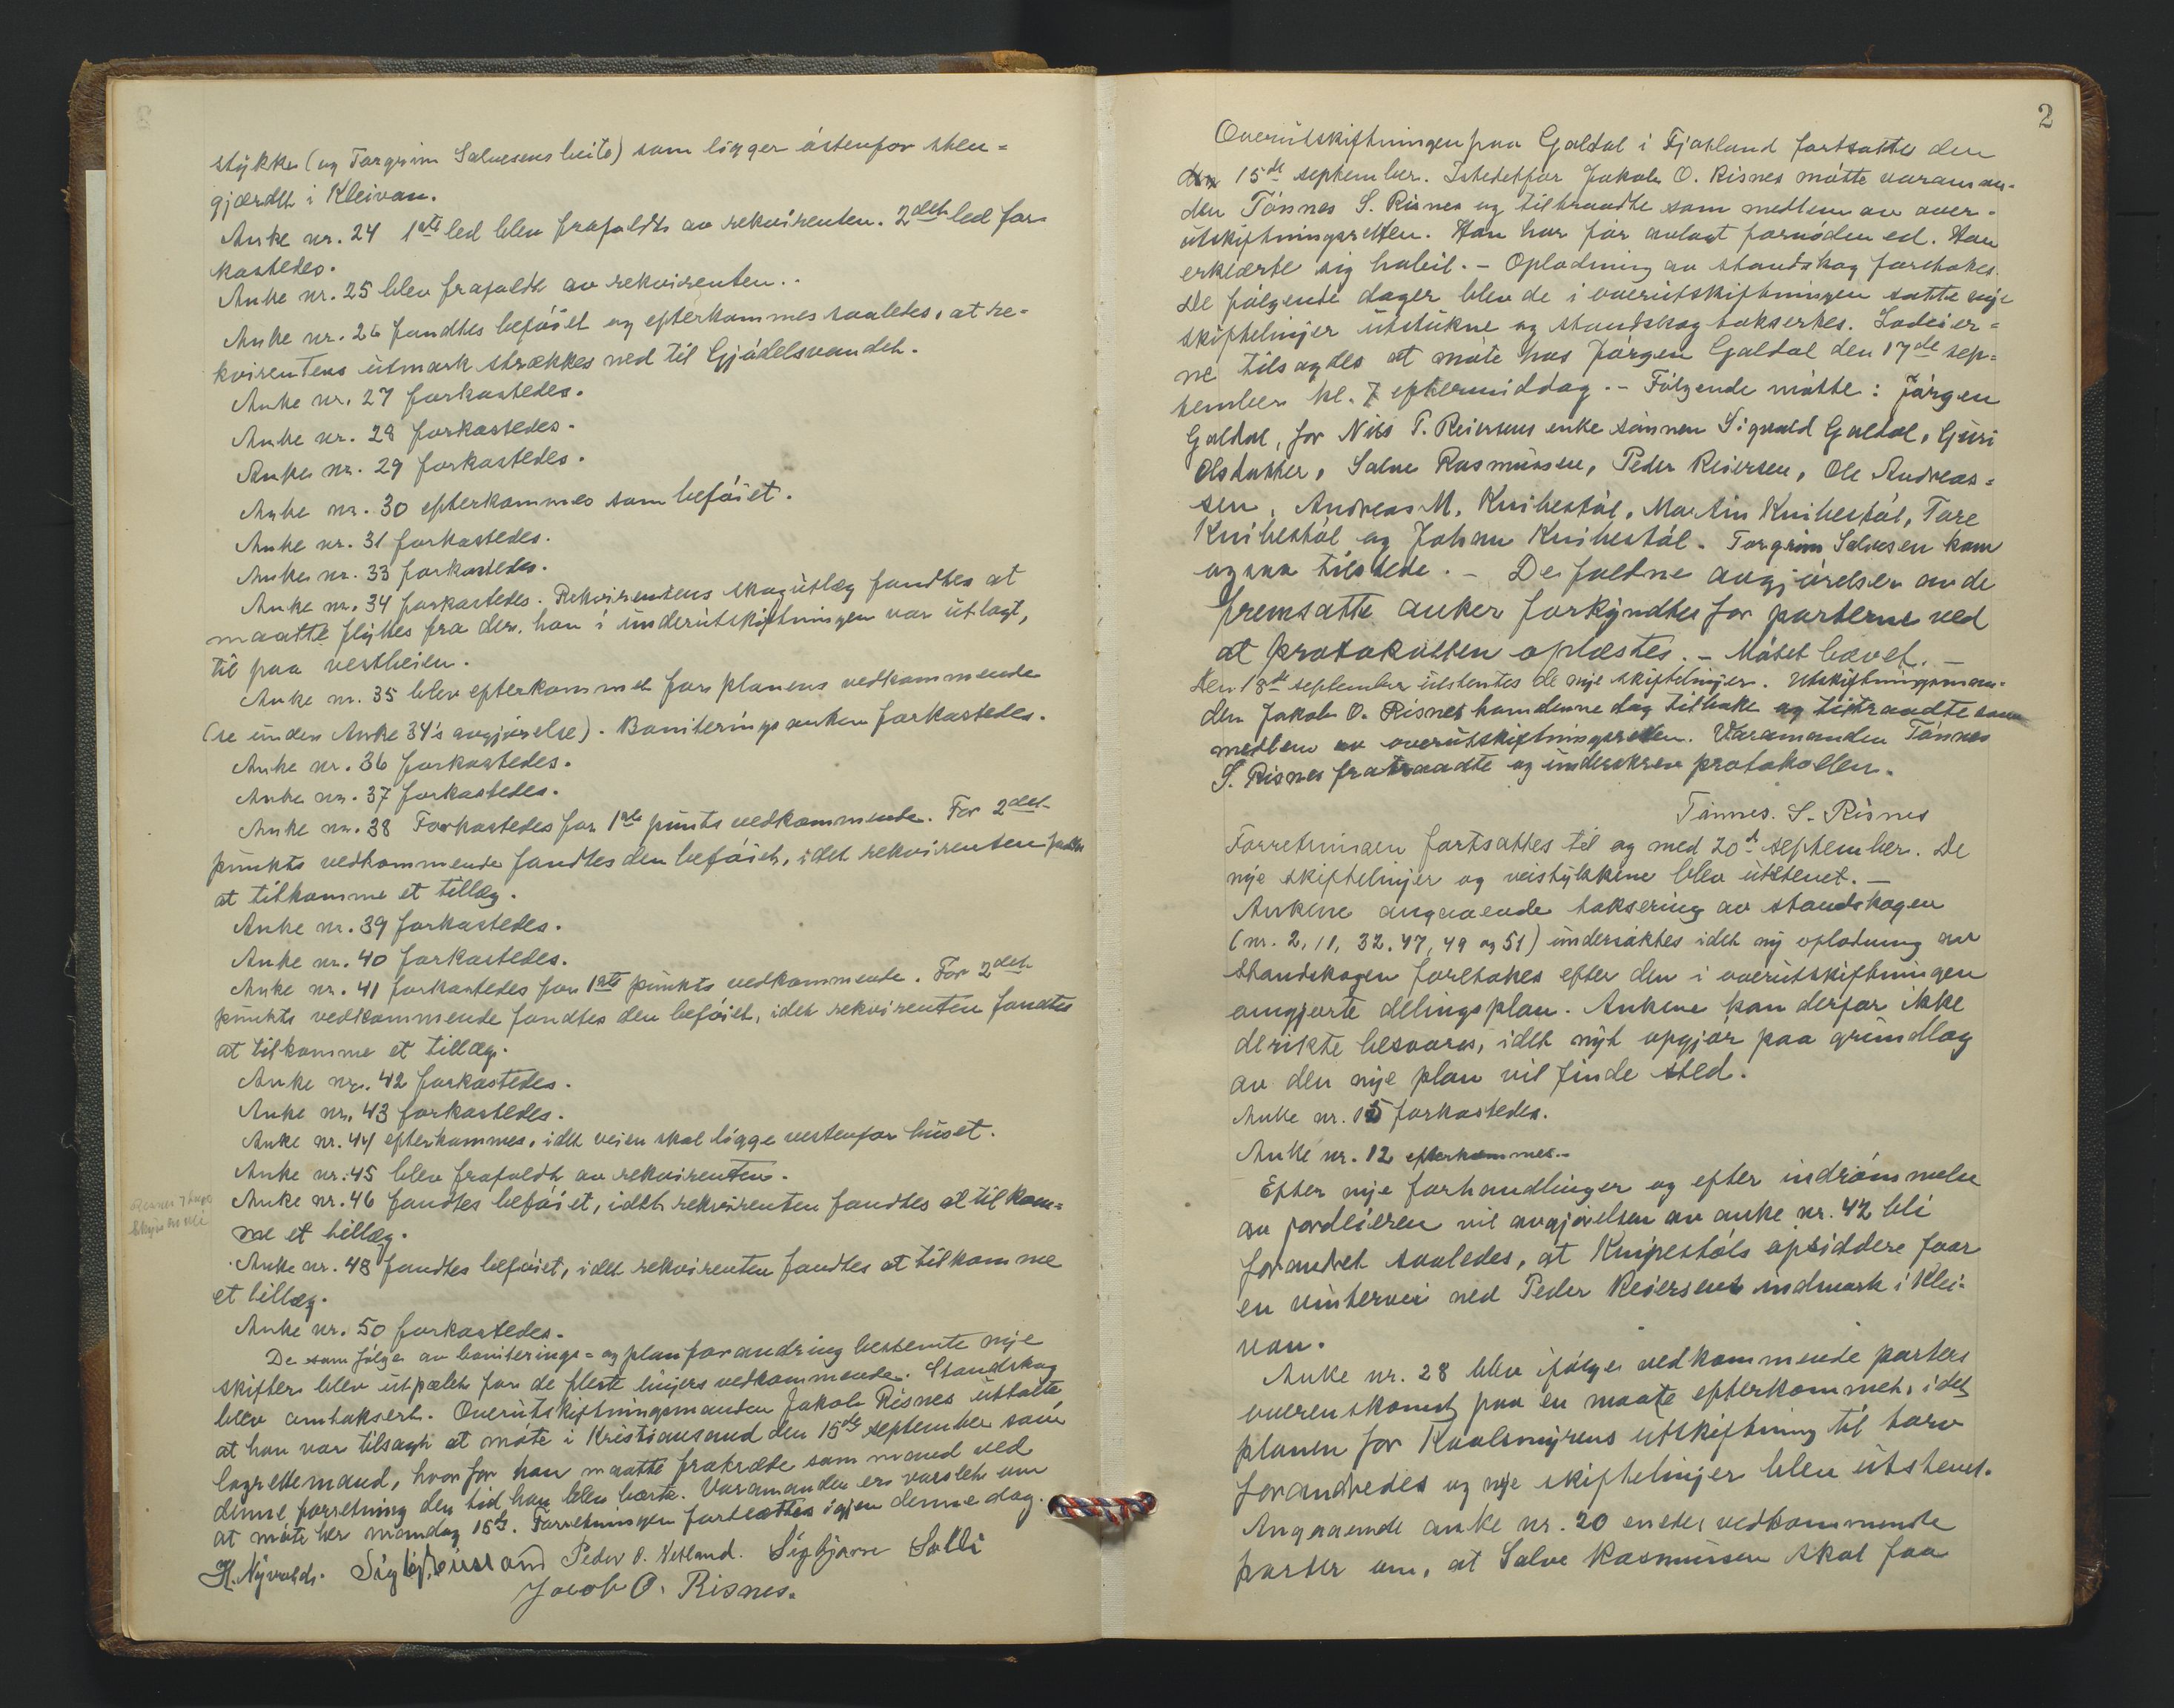 stykke (og Torgrim Salvesens beite) som ligger østenfor sten-
gjærdet i Kleivan.
Anke nr. 24 1ste led blev frafaldt av rekvirenten. 2det led for-
kastedes.
Anke nr. 25 blev frafaldt av rekvirenten..
Anke nr. 26 fandtes beføiet og efterkommes saaledes, at re-
kvirentens utmark strækkes ned til Gjødelsvandet.
Anke nr. 27 forkastedes.
Anke nr. 28 forkastedes.
Anke nr. 29 forkastedes.
Anke nr. 30 efterkommes som beføiet.
Anke nr. 31 forkastedes.
Anke nr. 33 forkastedes.
Anke nr. 34 forkastedes. Rekvirentens skogutlæg fandtes at
maatte flyttes fra der, han i underutskiftningen var utlagt,
til paa vestheien.
Anke nr. 35 blev efterkommet for planens vedkommende
(se under Anke 34's avgjørelse). Boniteringsanken forkastedes.
Anke nr. 36 forkastedes.
Anke nr. 37 forkastedes.
Anke nr. 38 Forkastedes for 1ste punts vedkommende. For 2det
punkts vedkommende fandtes den beføiet, idet rekvirenten fandtes
at tilkomme et tillæg.
Anke nr. 39 forkastedes.
Anke nr. 40 forkastedes.
Anke nr. 41 forkastedes for 1ste punkts vedkommende. For 2det
punkts vedkommende fandtes den beføiet, idet rekvirenten fandtes
at tilkomme et tillæg.
Anke nr. 42 forkastedes.
Anke nr. 43 forkastedes.
Anke nr. 44 efterkommes, idet veien skal ligge vestenfor huset.
Anke nr. 45 blev frafaldt av rekvirenten.
Anke nr. 46 fandtes beføiet, idet rekvirenten fandtes at tilkom-
me et tillæg.
Anke nr. 48 fandtes beføiet, idet rekvirenten fandtes at tilkomme
et tillæg.
Anke nr. 50 forkastedes.
De som følge av boniterings- og planforandring bestemte nye
skifter blev utpælet for de fleste linjers vedkommende. Standskog
blev omtaksert. Overutskiftningsmanden Jakob Risnes uttalte
at han var tilsagt at møte i Kristiansand den 15de september som
lagrettemand, hvorfor han maatte fratræde som mand ved
denne forretning den tid han blev borte. Varamanden er varslet om
at møte her mandag 15de. Forretningen fortsættes igjen denne dag.
H. Nyvoldt. Peder O. Hetland. Sigbjørn Solli
Jacob O. Risnes.
2
Overutskiftningen paa Galdal i Fjotland fortsattes den
den 15de september. Istedetfor Jakob O. Risnes møtte varaman-
den Tønnes S. Risnes og tiltraadte som medlem av over-
utskiftningsretten. Han har før avlagt fornøden ed. Han
erklærte sig habil. – Oplodning av standskog foretokes.
De følgende dager blev de i overutskiftningen satte nye
skiftelinjer utstukne og standskog taksertes. Lodeier-
ne tilsagdes at møte hos Jørgen Galdal den 17de sep-
tember kl. 7 eftermiddag. – Følgende møtte: Jørgen
Galdal, for Nils T. Reiersens enke sønnen Sigvald Galdal, Guri
Olsdatter, Salve Rasmussen, Peder Reiersen, Ole Andreas-
sen, Andreas M. Knibestøl, Martin Knibestøl, Tore
Knibestøl og Johan Knibestøl. Torgrim Salvesen kom
ogsaa tilstede. – De faldne avgjørelser av de
fremsatte anker forkyndtes for parterne ved
at protokollen oplæstes. – Møtet hævet. –
Den 18de september utstentes de nye skiftelinjer. Utskiftningsman-
den Jakob O. Risnes kom denne dag tilbake og tiltraadte som
medlem av overutskiftningsretten. Varamanden Tønnes
S. Risnes fratraadte og underskrev protokollen.
Tønnes. S. Risnes
Forretningen fortsattes til og med 20de september. De
nye skiftelinjer og veistykkene blev utstenet. –
Ankene angaaende taksering av standskogen
(nr. 2, 11, 32, 47, 49 og 51) undersøktes idet ny oplodning av
standskogen foretokes efter den i overutskiftningen
omgjorte delingsplan. Ankene kan derfor ikke
direkte besvares, idet nyt opgjør paa grundlag
av den nye plan vil finde sted.
Anke nr. 15 forkastedes.
Anke nr. 12 efterkommes. –
Efter nye forhandlinger og efter indrømmelse
av jordeieren vil avgjørelsen av anke nr. 42 bli
forandret saaledes, at Knipestøls opsiddere faar
en vintervei ned Peder Reiersens indmark i Klei-
van.
Anke nr. 28 blev ifølge vedkommende parters
overenskomst paa en maate efterkommet, idet
planen for Kaalemyrens utskiftning til torv
forandredes og nye skiftelinjer blev utstenet.
Angaaende anke nr. 20 enedes vedkommende
parter om, at Salve Rasmussen skal faa